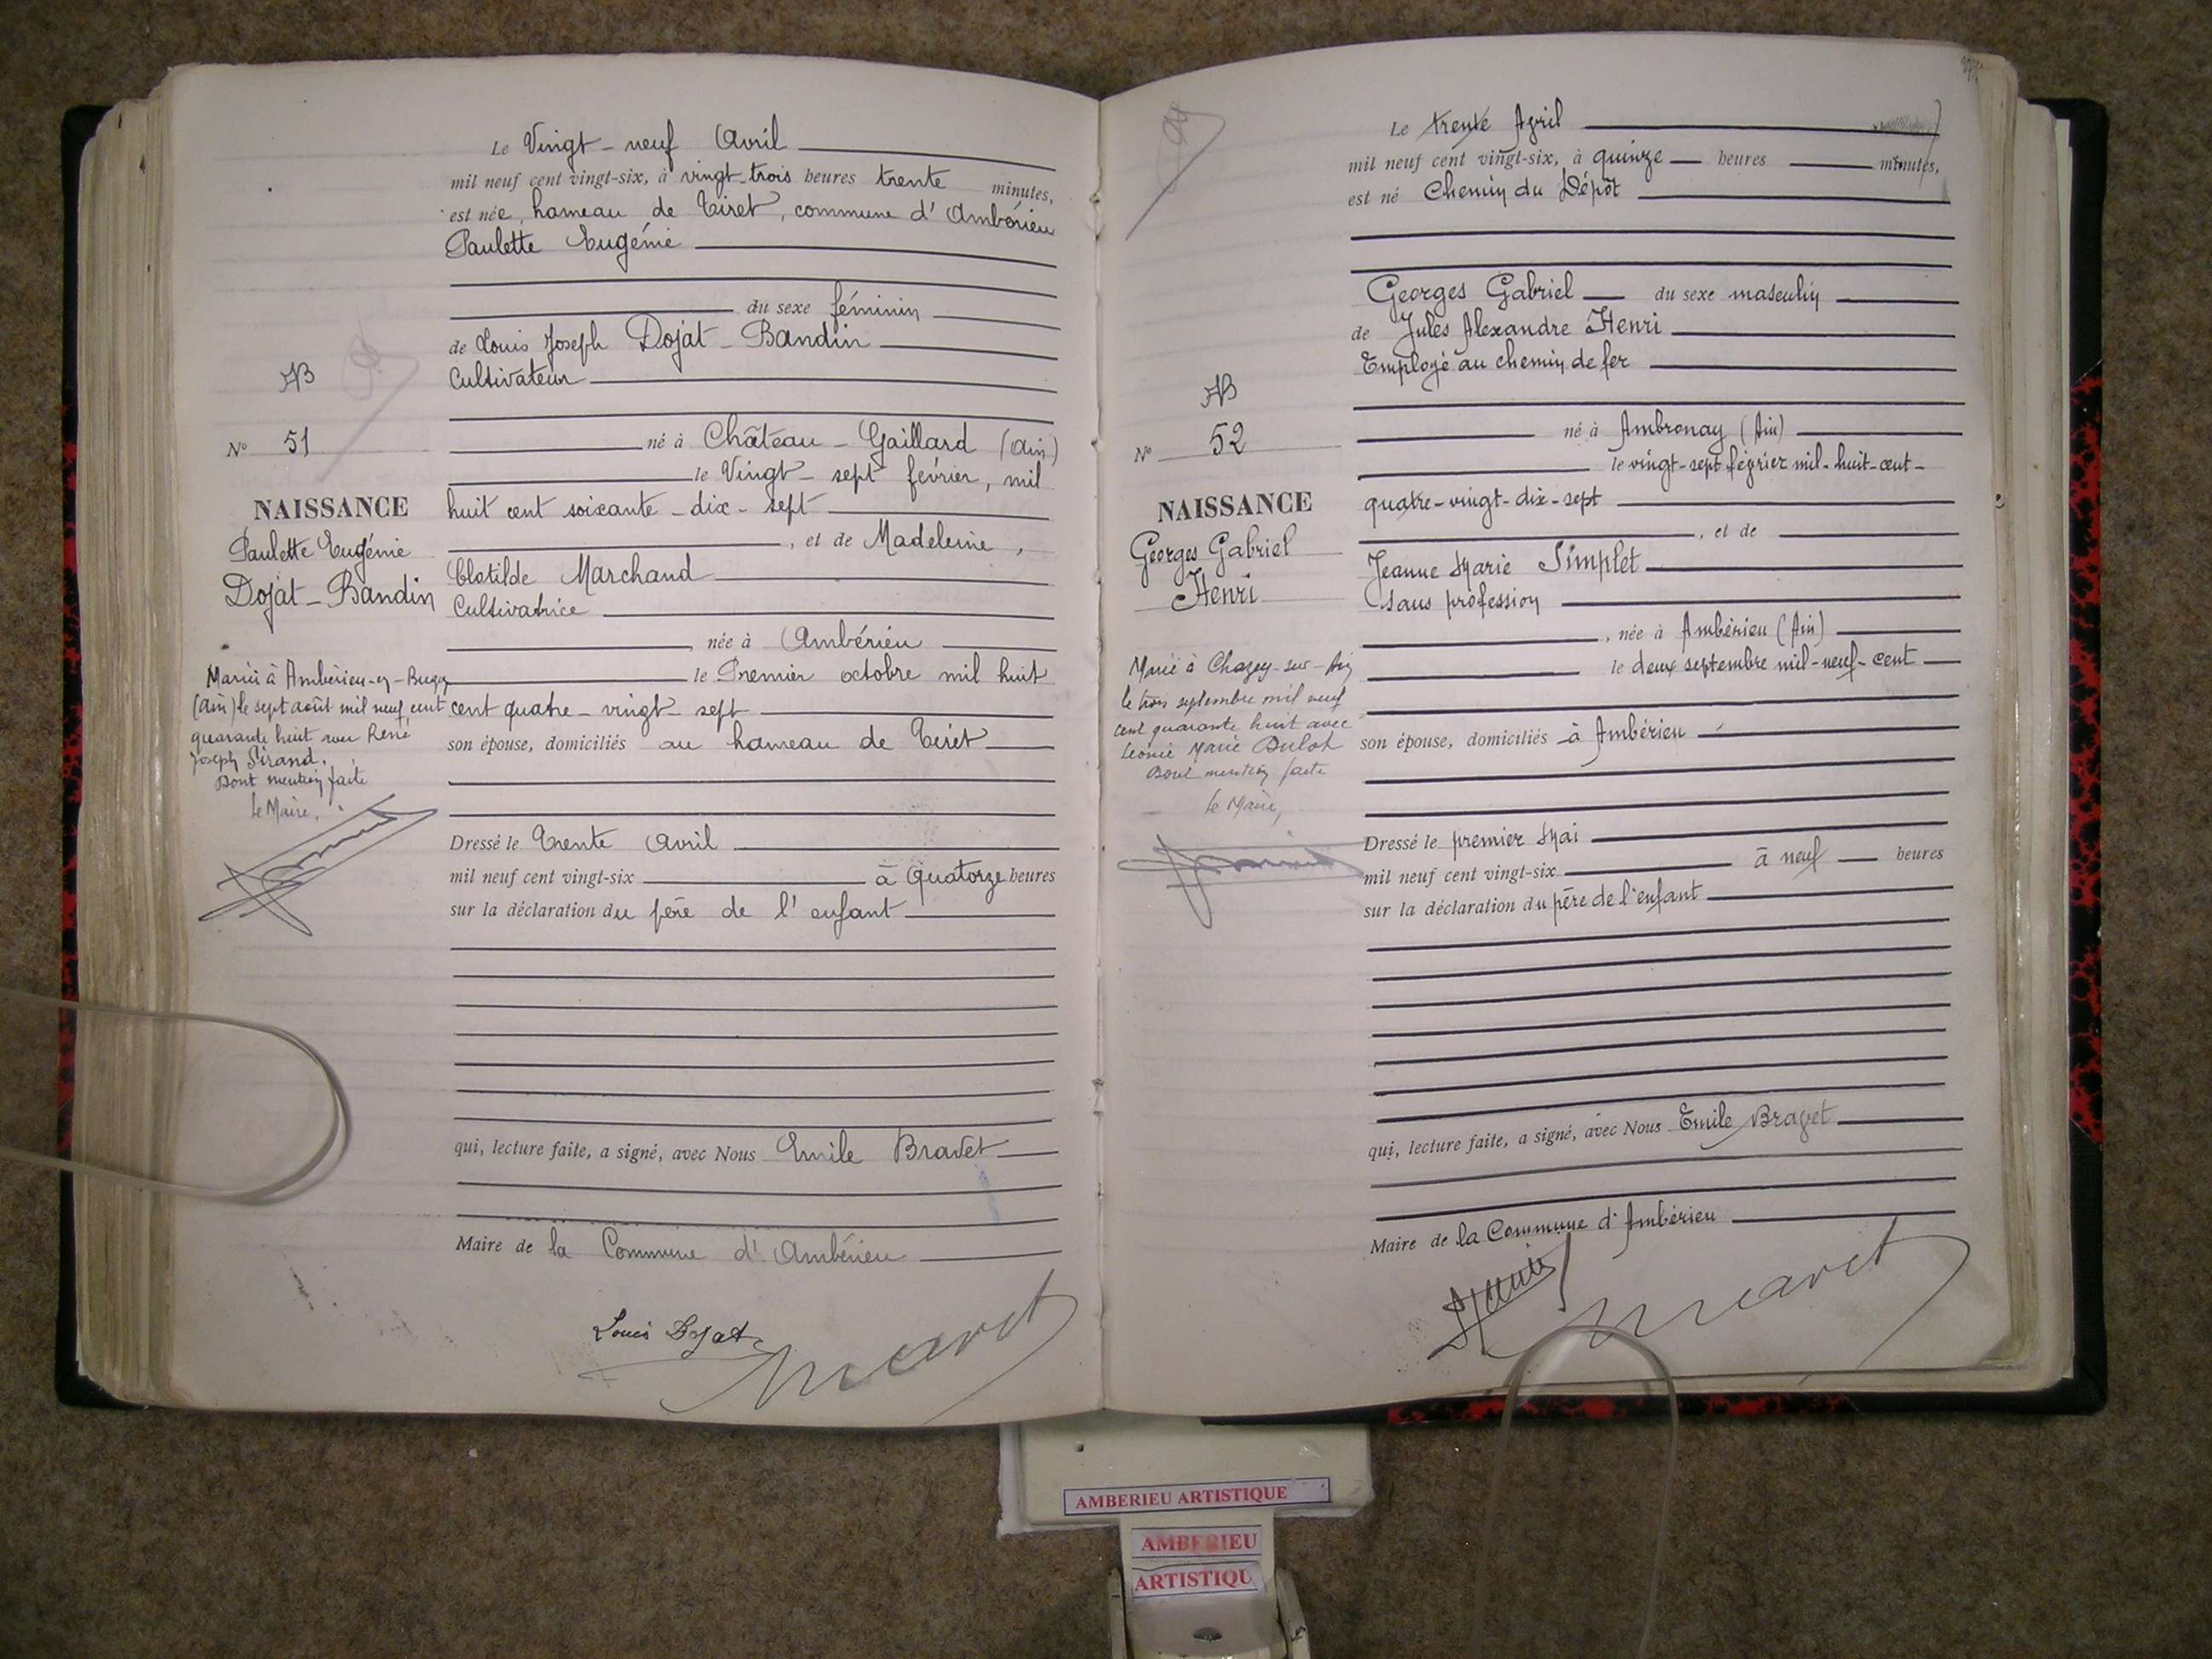 Le Vingt-neuf Avril
mil neuf cent vingt-six, à vingt-trois heures trente minutes,
est née, hameau de Tiret, commune d'Ambérieu
Paulette Eugénie
du sexe féminin
de Louis Joseph Dojat-Bandin
Cultivateur
né à Château-Gaillard (Ain)
le Vingt-sept février, mil
huit cent soixante-dix-sept
, et de Madeleine,
Clotilde Marchand
Cultivatrice
, née à Ambérieu
le Premier octobre mil huit
cent quatre-vingt-sept
son épouse, domiciliés au hameau de Tiret
Dressé le Trente Avril
mil neuf cent vingt-six à Quatorze heures
sur la déclaration du père de l'enfant
qui, lecture faite, a signé, avec Nous Emile Bravet
Maire de la Commune d'Ambérieu
Louis Dojat
NB
No 51
NAISSANCE
Paulette Eugénie
Dojat-Bandin
Mariée à Ambérieu-en-Bugey
(Ain) le sept août mil neuf cent
quarante huit avec René
Joseph Girand.
Dont mention faite
Le Maire,
Le trente Avril
mil neuf cent vingt-six, à quinze heures minutes,
est né Chemin du Dépôt
Georges Gabriel du sexe masculin
de Jules Alexandre Henri
Employé au chemin de fer
né à Ambronay (Ain)
le vingt-sept février mil-huit-cent-
quatre-vingt-dix-sept
, et de
Jeanne Marie Simplet
Sans profession
, née à Ambérieu (Ain)
le deux septembre mil-neuf-cent
son épouse, domiciliés à Ambérieu
Dressé le premier Mai
mil neuf cent vingt-six à neuf heures
sur la déclaration du père de l'enfant
qui, lecture faite, a signé, avec Nous Emile Bravet
Maire de la Commune d'Ambérieu
NB
No 52
NAISSANCE
Georges Gabriel
Henri
Marié à Chazey-sur-Ain
le trois septembre mil neuf
cent quarante huit avec
Léonie Marie Dulot
Dont mention faite
Le Maire,
AMBERIEU ARTISTIQUE
AMBERIEU
ARTISTIQU